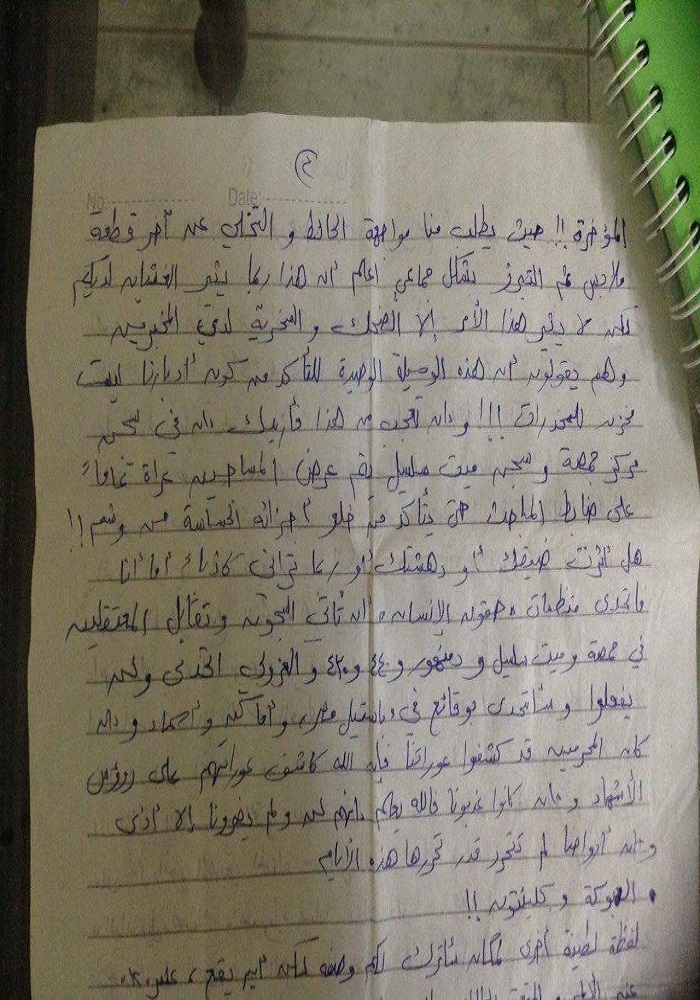 (٤)
No: Date:
المؤخرة !! حيث يطلب منا مواجهة الحائط و التخلي عن آخر قطعة
ملابس ثم التبرز بشكل جماعي أعلم أن هذا ربما يثير الغثيان لديكم
لكن لا يثير هذا الأمر إلا الضحك و السخرية لدى المخبرين
وهم يقولون أن هذه الوسيلة الوحيدة للتأكد من كون أدبارنا ليست
مخزن للمخدرات !!! وإن تعجب من هذا فأزيدك إن في سجن
مركز جمصة وسجن ميت سلسيل يتم عرض المساجين عراة تماماً
على ضابط المباحث حتى يتأكد من خلو أجزائه الحساسة من وشم !!
هل أثرت ضيقك أو دهشتك أو ربما تراني كاذباً أما أنا
فأتحدى منظمات "حقوق الإنسان" أن تأتي السجون وتقابل المعتقلين
في جمصة وميت سلسيل و دمنهور و ٤٤٠ و ٤٣٠ و الغزولي الحربي ولن
يفعلوا و سأتحدى بوقائع في باستيل مصر، وأماكن وأعداد و إن
كان المجرمين قد كشفوا عوراتنا فإن الله كاشف عوراتهم على رؤوس
الأشهاد و إن كانوا عذبونا فالله يعلم إنهم لن ولم يضرونا إلا أذى
وإن أرواحنا لم تتحرر قدر تحررها هذه الأيام
• البوكة و كلينتون !!
لفظة لطيفة أخرى لمكان سأترك لكم وصفه لكن أين يقع،